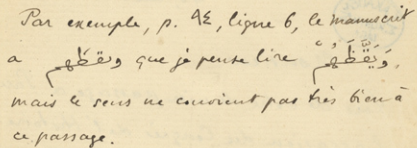 Par exemple, p. ٩٤, ligne 6, le manuscrit
a ونقظهم que je pense lire وَيَقَّظَهُمْ,
mais le sens ne convient pas très bien à
ce passage.